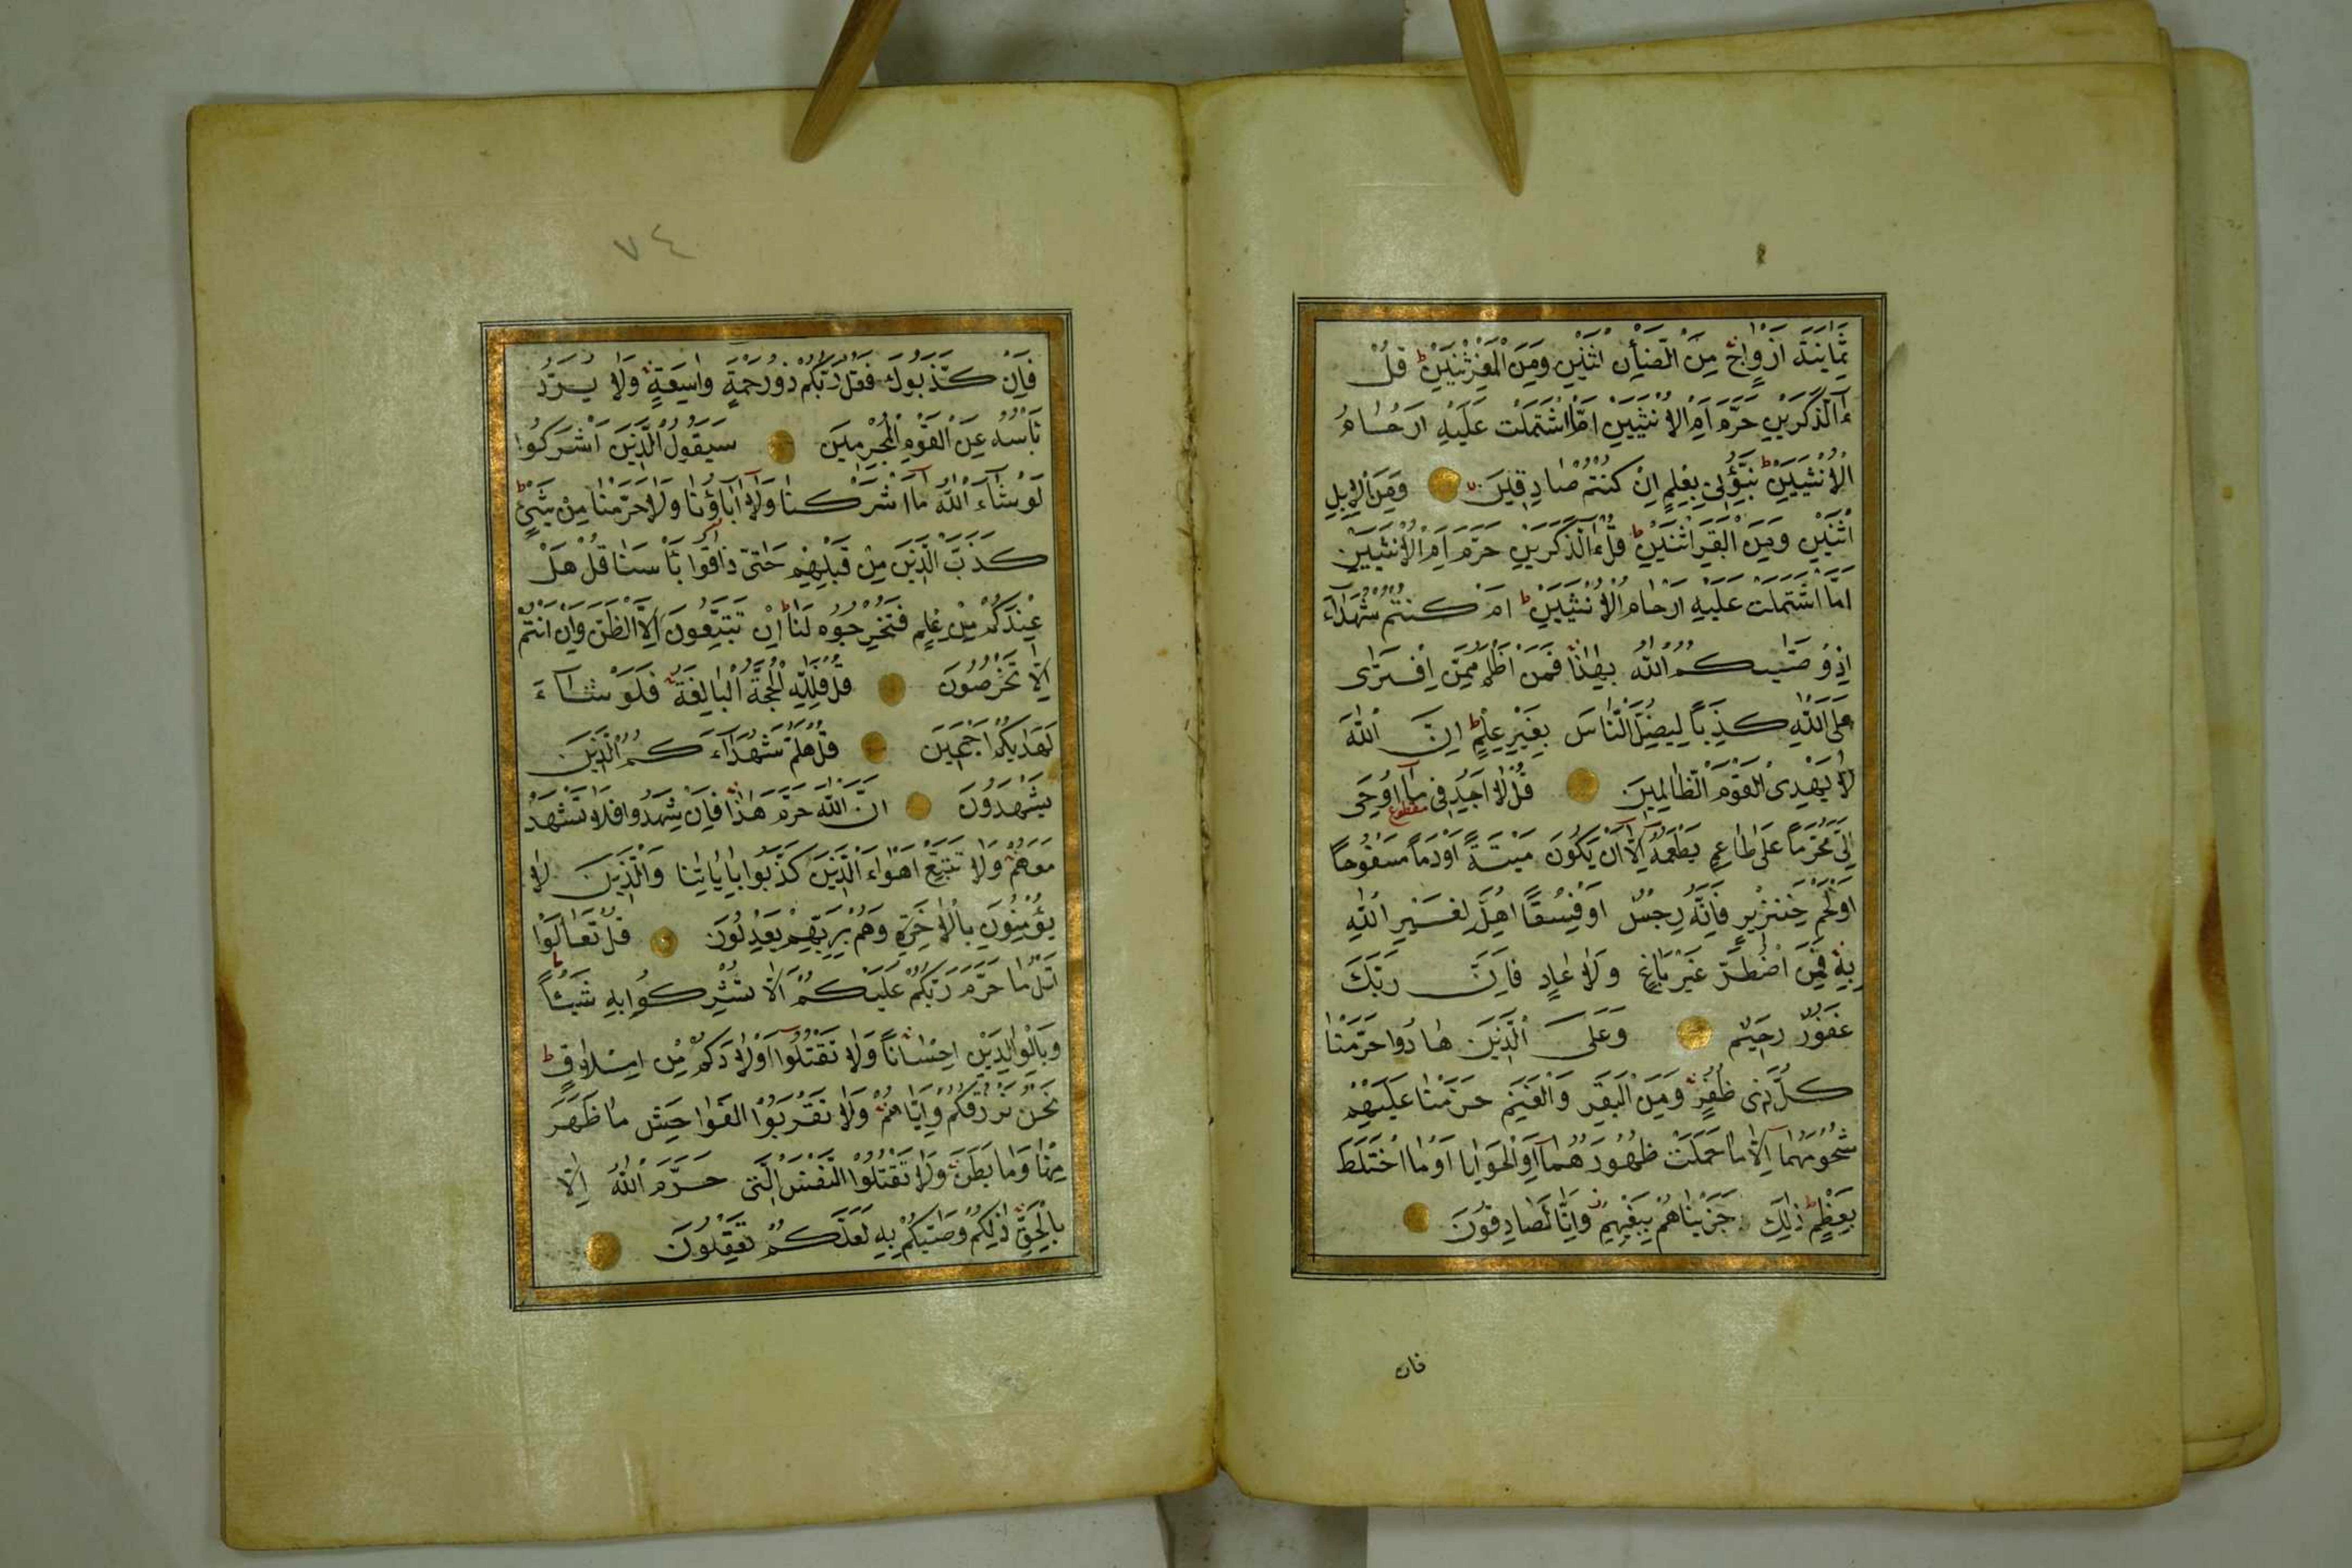 ثَمَانِيَةَ اَزْوَاجٍ مِنَ الضَّأْنِ اثْنَيْنِ وَمِنَ الْمَعْزِ اثْنَيْنِ ط قُلْ
ءٰٓالذَّكَرَيْنِ حَرَّمَ اَمِ الْاُنْثَيَيْنِ اَمَّا اشْتَمَلَتْ عَلَيْهِ اَرْحَامُ
الْاُنْثَيَيْنِ ط نَبِّؤُنِى بِعِلْمٍ اِنْ كُنْتُمْ صَادِقِينَ وَمِنَ الْاِبِلِ
اثْنَيْنِ وَمِنَ الْبَقَرِ اثْنَيْنِ ط قُلْ ءٰٓالذَّكَرَيْنِ حَرَّمَ اَمِ الْاُنْثَيَيْنِ
اَمَّا اشْتَمَلَتْ عَلَيْهِ اَرْحَامُ الْاُنْثَيَيْنِ ط اَمْ كُنْتُمْ شُهَدَآءَ
اِذْ وَصّٰيكُمُ اللّٰهُ بِهٰذَا فَمَنْ اَظْلَمُ مِمَّنِ افْتَرٰى
عَلَى اللّٰهِ كَذِبًا لِيُضِلَّ النَّاسَ بِغَيْرِ عِلْمٍ ط اِنَّ اللّٰهَ
لَا يَهْدِى الْقَوْمَ الظَّالِمِينَ قُلْ لَا اَجِدُ فِى مَآ اُوحِىَ
مقطوع
اِلَىَّ مُحَرَّمًا عَلٰى طَاعِمٍ يَطْعَمُهُٓ اِلَّآ اَنْ يَكُونَ مَيْتَةً اَوْ دَمًا مَسْفُوحًا
اَوْ لَحْمَ خِنْزِيرٍ فَاِنَّهُ رِجْسٌ اَوْ فِسْقًا اُهِلَّ لِغَيْرِ اللّٰهِ
بِهِ فَمَنِ اضْطُرَّ غَيْرَ بَاغٍ وَلَا عَادٍ فَاِنَّ رَبَّكَ
غَفُورٌ رَحِيمٌ وَعَلَى الَّذِينَ هَادُوا حَرَّمْنَا
كُلَّ ذِى ظُفُرٍ وَمِنَ الْبَقَرِ وَالْغَنَمِ حَرَّمْنَا عَلَيْهِمْ
شُحُومَهُمَآ اِلَّا مَا حَمَلَتْ ظُهُورُهُمَآ اَوِ الْحَوَايَا اَوْ مَا اخْتَلَطَ
بِعَظْمٍ ط ذٰلِكَ جَزَيْنَاهُمْ بِبَغْيِهِمْ وَاِنَّا لَصَادِقُونَ
فان
٧٤
فَاِنْ كَذَّبُوكَ فَقُلْ رَبُّكُمْ ذُو رَحْمَةٍ وَاسِعَةٍ وَلَا يُرَدُّ
بَأْسُهُ عَنِ الْقَوْمِ الْمُجْرِمِينَ سَيَقُولُ الَّذِينَ اَشْرَكُوا
لَوْ شَآءَ اللّٰهُ مَآ اَشْرَكْنَا وَلَآ اٰبَآؤُنَا وَلَا حَرَّمْنَا مِنْ شَىْءٍ ط
كَذَّبَ الَّذِينَ مِنْ قَبْلِهِمْ حَتّٰى ذَاقُوا بَأْسَنَا قُلْ هَلْ
عِنْدَكُمْ مِنْ عِلْمٍ فَتُخْرِجُوهُ لَنَا ط اِنْ تَتَّبِعُونَ اِلَّا الظَّنَّ وَاِنْ اَنْتُمْ
اِلَّا تَخْرُصُونَ قُلْ فَلِلّٰهِ الْحُجَّةُ الْبَالِغَةُ فَلَوْ شَآءَ
لَهَدٰيكُمْ اَجْمَعِينَ قُلْ هَلُمَّ شُهَدَآءَكُمُ الَّذِينَ
يَشْهَدُونَ اَنَّ اللّٰهَ حَرَّمَ هٰذَا فَاِنْ شَهِدُوا فَلَا تَشْهَدْ
مَعَهُمْ وَلَا تَتَّبِعْ اَهْوَآءَ الَّذِينَ كَذَّبُوا بِاٰيَاتِنَا وَالَّذِينَ لَا
يُؤْمِنُونَ بِالْاٰخِرَةِ وَهُمْ بِرَبِّهِمْ يَعْدِلُونَ قُلْ تَعَالَوْا
اَتْلُ مَا حَرَّمَ رَبُّكُمْ عَلَيْكُمْ اَلَّا تُشْرِكُوا بِهِ شَيْئًا
وَبِالْوَالِدَيْنِ اِحْسَانًا وَلَا تَقْتُلُوٓا اَوْلَادَكُمْ مِنْ اِمْلَاقٍ ط
نَحْنُ نَرْزُقُكُمْ وَاِيَّاهُمْ وَلَا تَقْرَبُوا الْفَوَاحِشَ مَا ظَهَرَ
مِنْهَا وَمَا بَطَنَ وَلَا تَقْتُلُوا النَّفْسَ الَّتِى حَرَّمَ اللّٰهُ اِلَّا
بِالْحَقِّ ذٰلِكُمْ وَصّٰيكُمْ بِهِ لَعَلَّكُمْ تَعْقِلُونَ